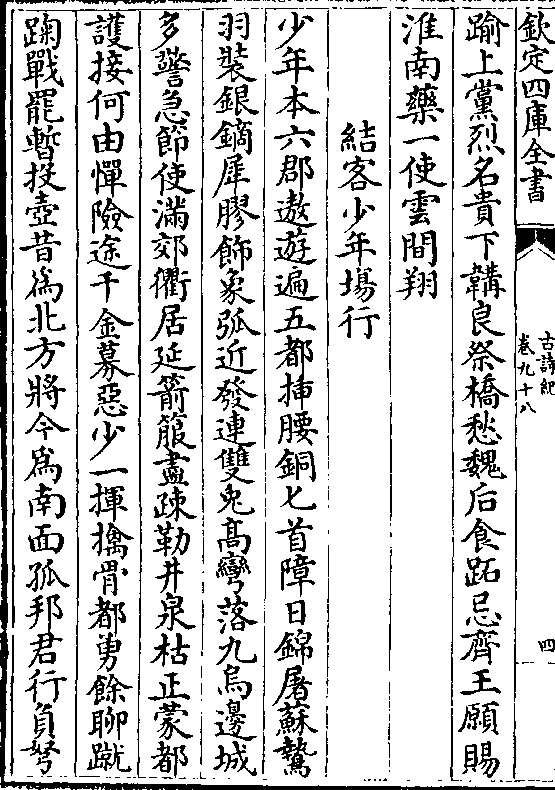 欽定四庫全書
古詩紀
卷九十八
四
踰上黨烈名貴下韝良祭橋愁魏后食跖忌齊王願賜
淮南藥一使雲間翔
結客少年塲行
少年本六郡遨遊遍五都揷腰銅匕首障日錦屠蘇鷙
羽裝銀鏑犀膠飾象弧近發連雙兎高彎落九烏邊城
多警急節使滿郊衢居延箭箙盡疎勒井泉枯正蒙都
護接何由憚險途千金募惡少一揮擒骨都勇餘聊蹴
踘戰罷暫投壺昔為北方將今為南面孤邦君行負弩